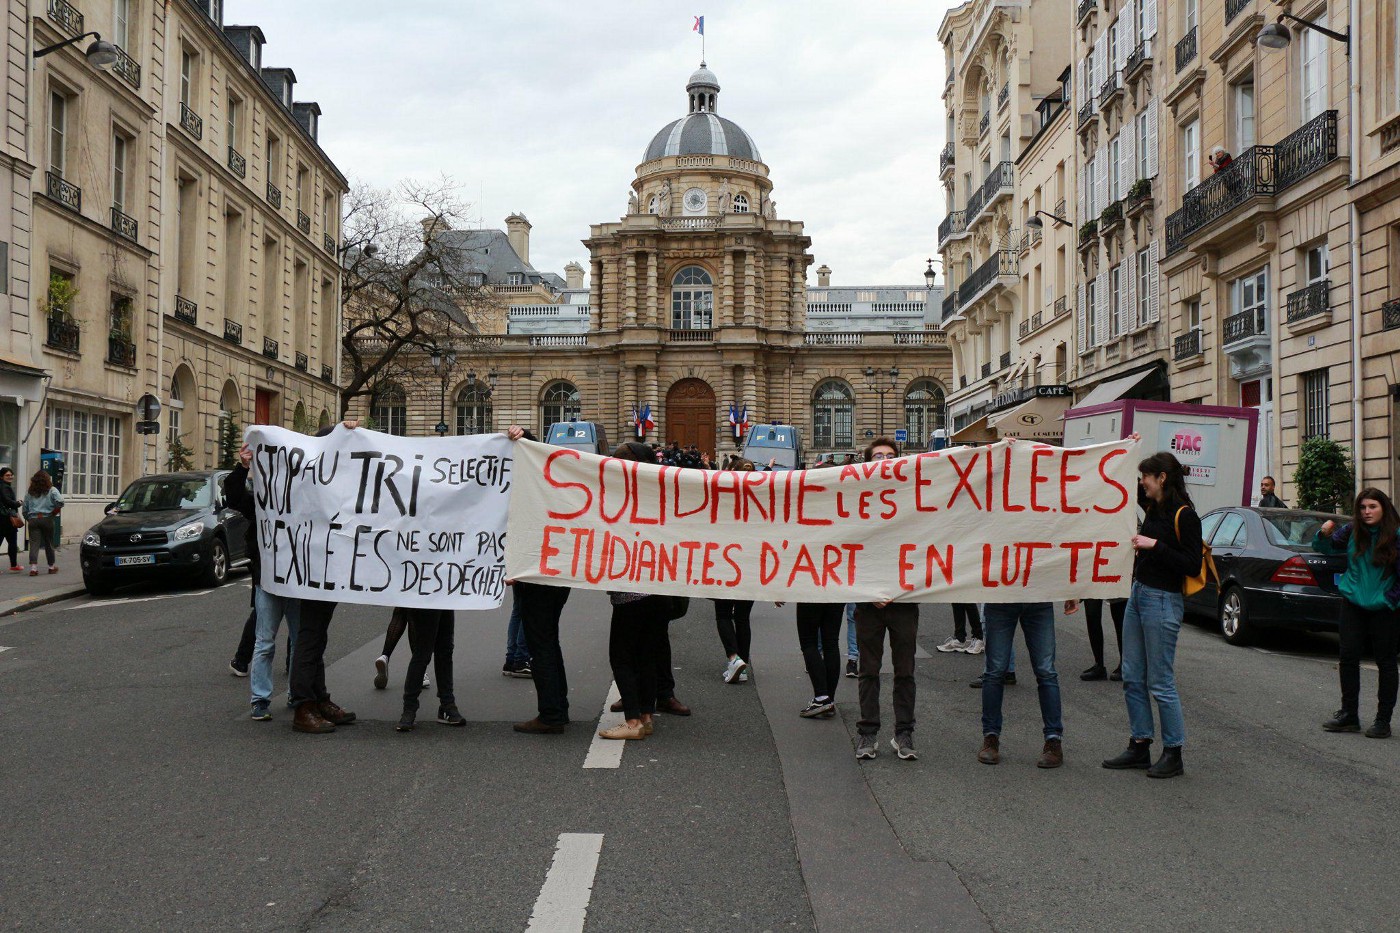 STOP AU TRI SELECTIF,
LES EXILÉ.ES NE SONT PAS
DES DÉCHETS
SOLIDARITE AVEC LES EXILÉ.E.S
ETUDIANT.E.S D'ART EN LUTTE
CAFÉ
TAC
BK-705-SV